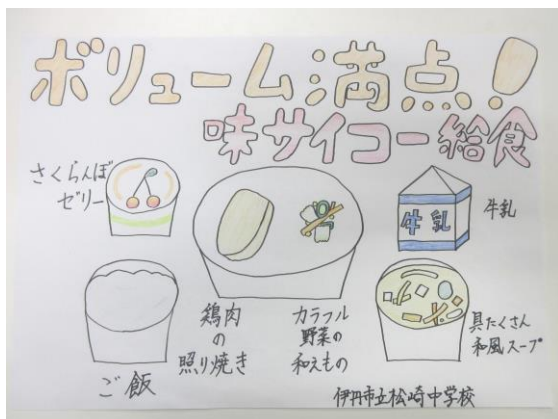 ボリューム満点!
味サイコー給食
さくらんぼ
ゼリー
牛乳
牛乳
ご飯
鶏肉
の
照り焼き
カラフル
野菜の
和えもの
具たくさん
和風スープ
伊丹市立松崎中学校